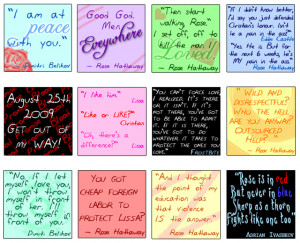 "I am at
peace
with you."
- Dimitri Belikov
Good God.
Men
Everywhere
- Rose Hathaway
"Then start
walking, Rose."
I set off, off to
kill the man I
Loved
- Rose Hathaway
"If I didn't know better,
I'd say you just defended
Christian's honour. Isn't
he a pain in the ass?"
Eddie Castile
"Yes he is. But for
the next 6 weeks, he's
MY pain in the ass!"
- Rose Hathaway
August 25th
2009
GET OUT OF
my WAY!
"I like him."
Lissa
"Like or LIKE?"
Christian
"Oh, there's a
difference?"
Lissa
YOU CAN'T FORCE
LOVE, I REALIZED. IT'S THERE
OR IT ISN'T. IF IT'S
NOT THERE, YOU'VE GOT
TO BE ABLE TO ADMIT
IT. IF IT IS THERE,
YOU'VE GOT TO DO
WHATEVER IT TAKES TO
PROTECT THE ONES YOU
LOVE.
FROSTBITE
"WILD AND
DISRESPECTFUL?
WHO THE HELL
ARE YOU ANYWAY?
OUTSOURCED
HELP?"
- Rose Hathaway
"No. If I let
myself love you,
I won't throw
myself in front
of her. I'll
throw myself in
front of you."
- Dimitri Belikov
"YOU GOT
CHEAP FOREIGN
LABOR TO
PROTECT LISSA?"
- Rose Hathaway
"And I thought
the point of my
education was
that violence
IS the answer."
- Rose Hathaway
"Rose is in red
But never in blue
Sharp as a thorn
Fights like one too"
ADRIAN IVASHKOV